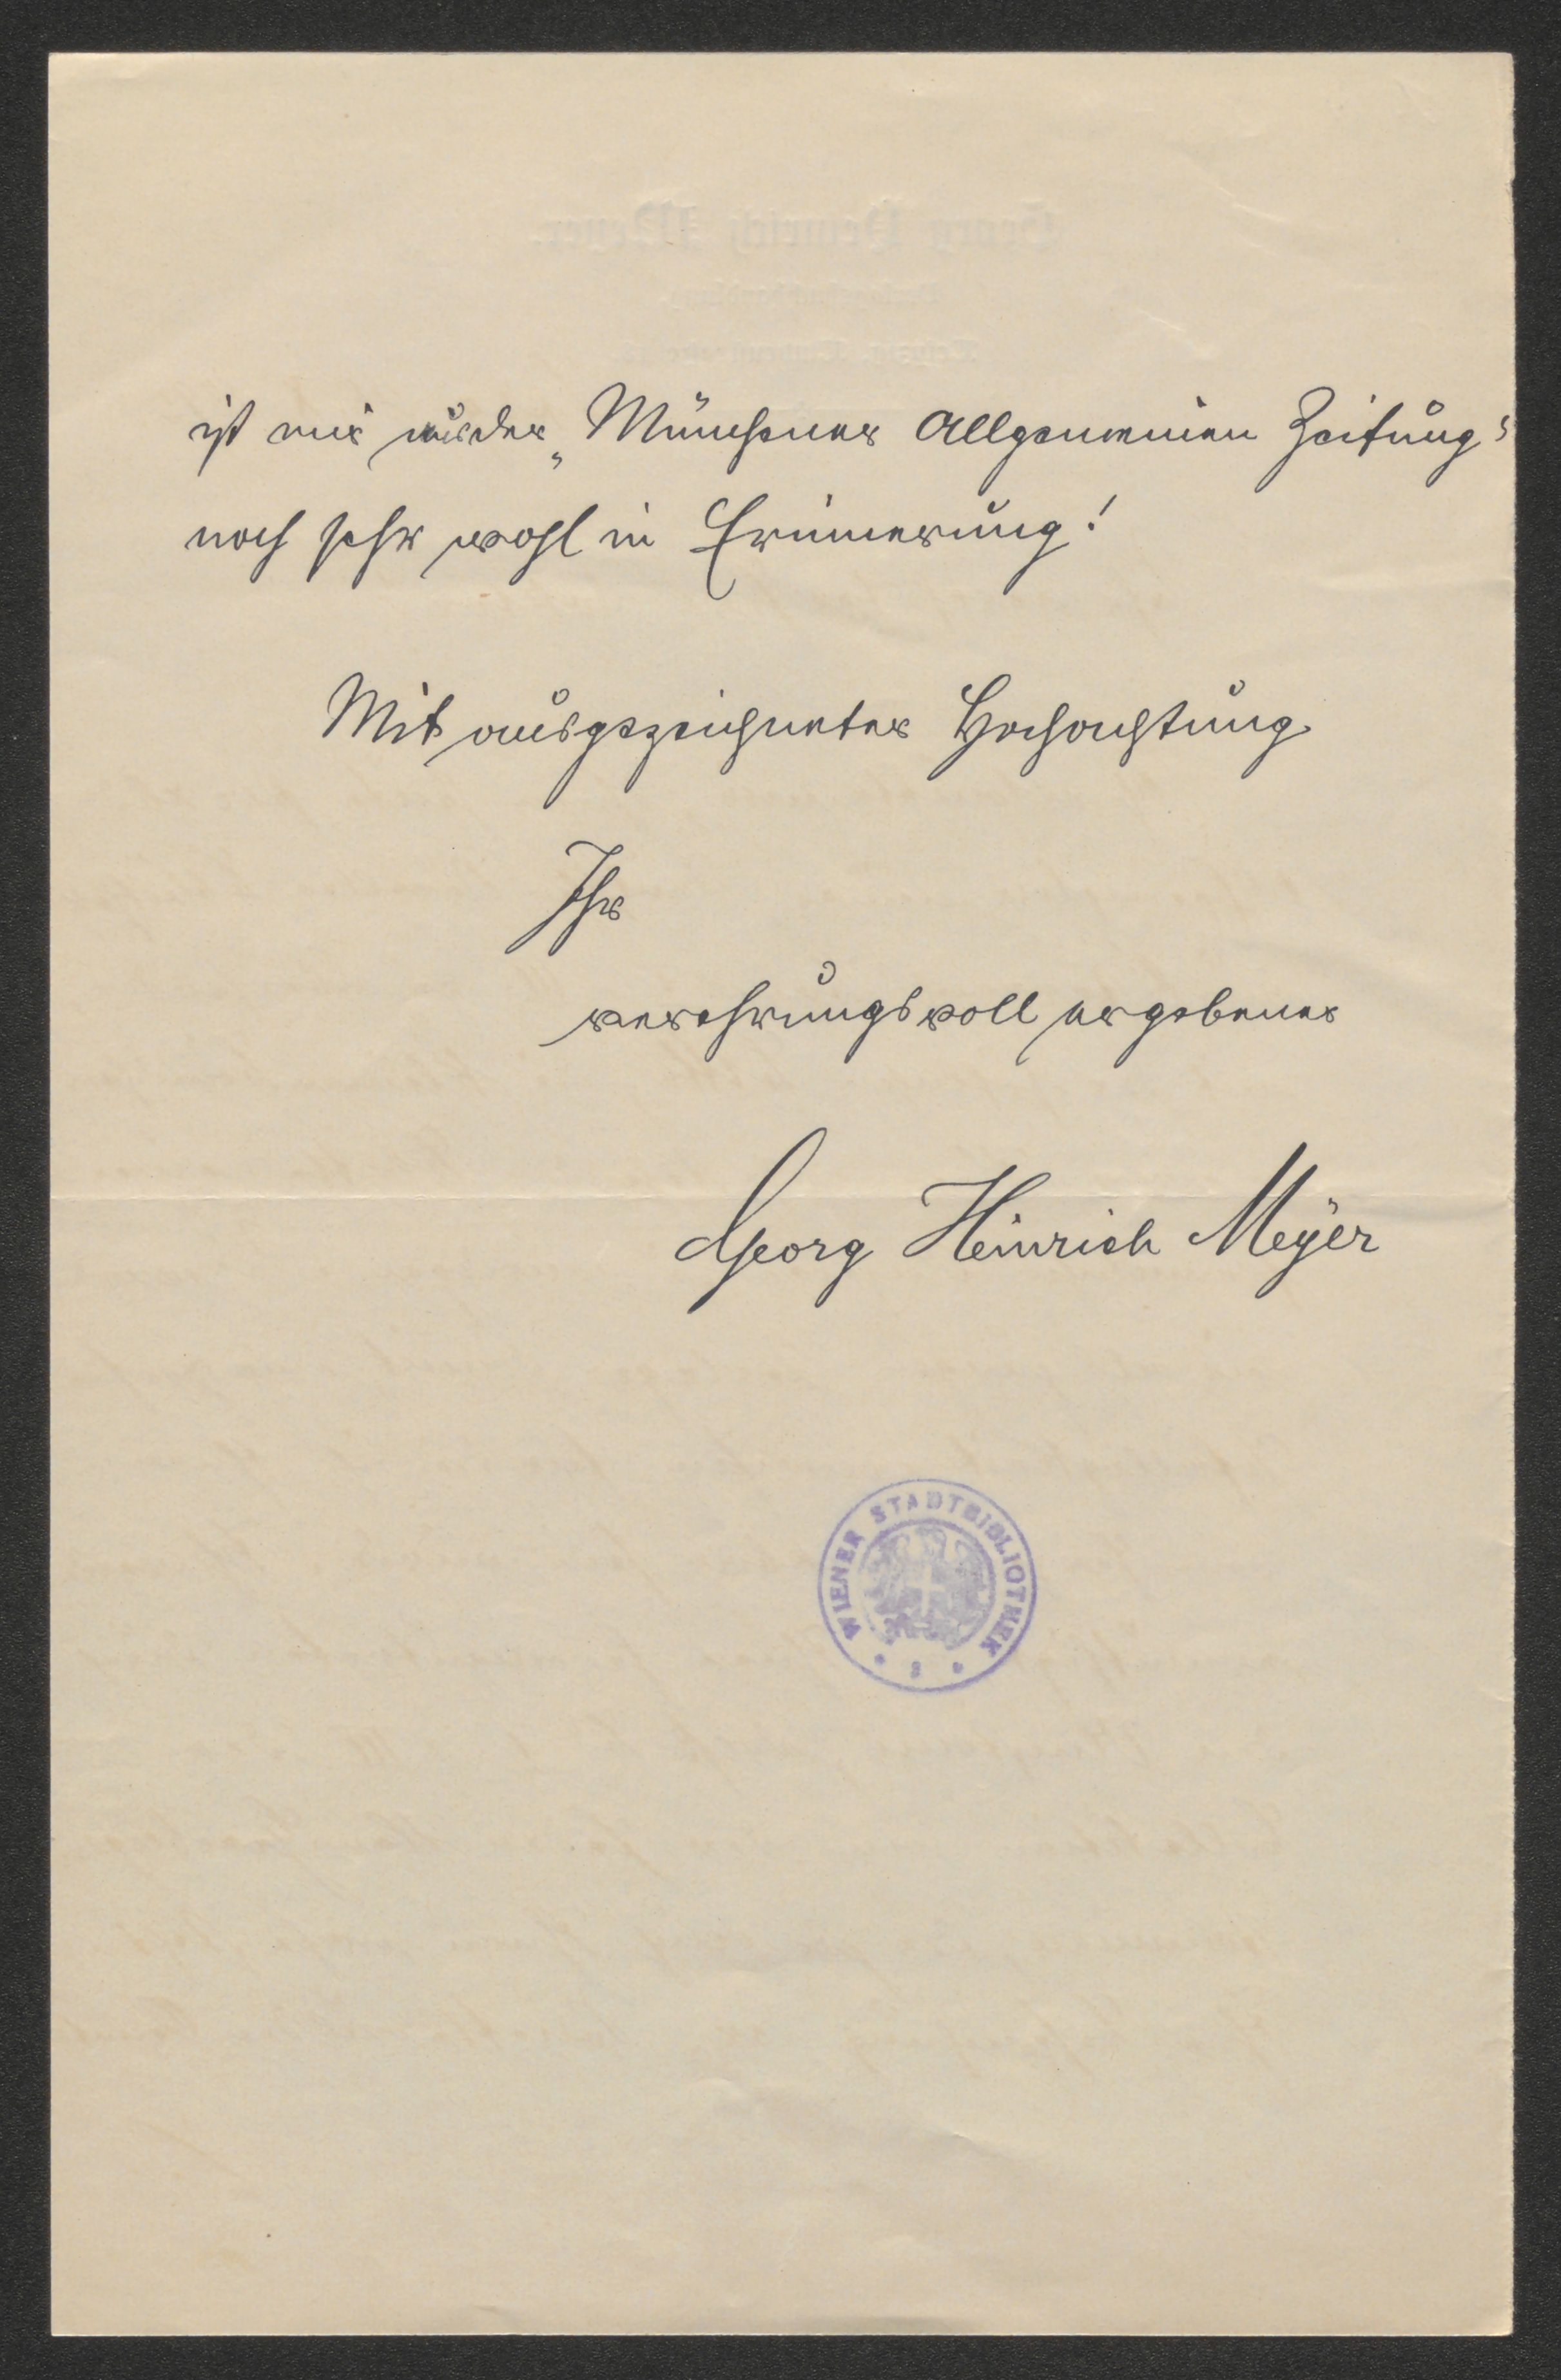 ist mir aus der „Münchener Allgemeinen Zeitung“
noch sehr wohl in Erinnerung!
Mit ausgezeichneter Hochachtung
Ihr
verehrungsvoll ergebener
Georg Heinrich Meyer
WIENER STADTBIBLIOTHEK